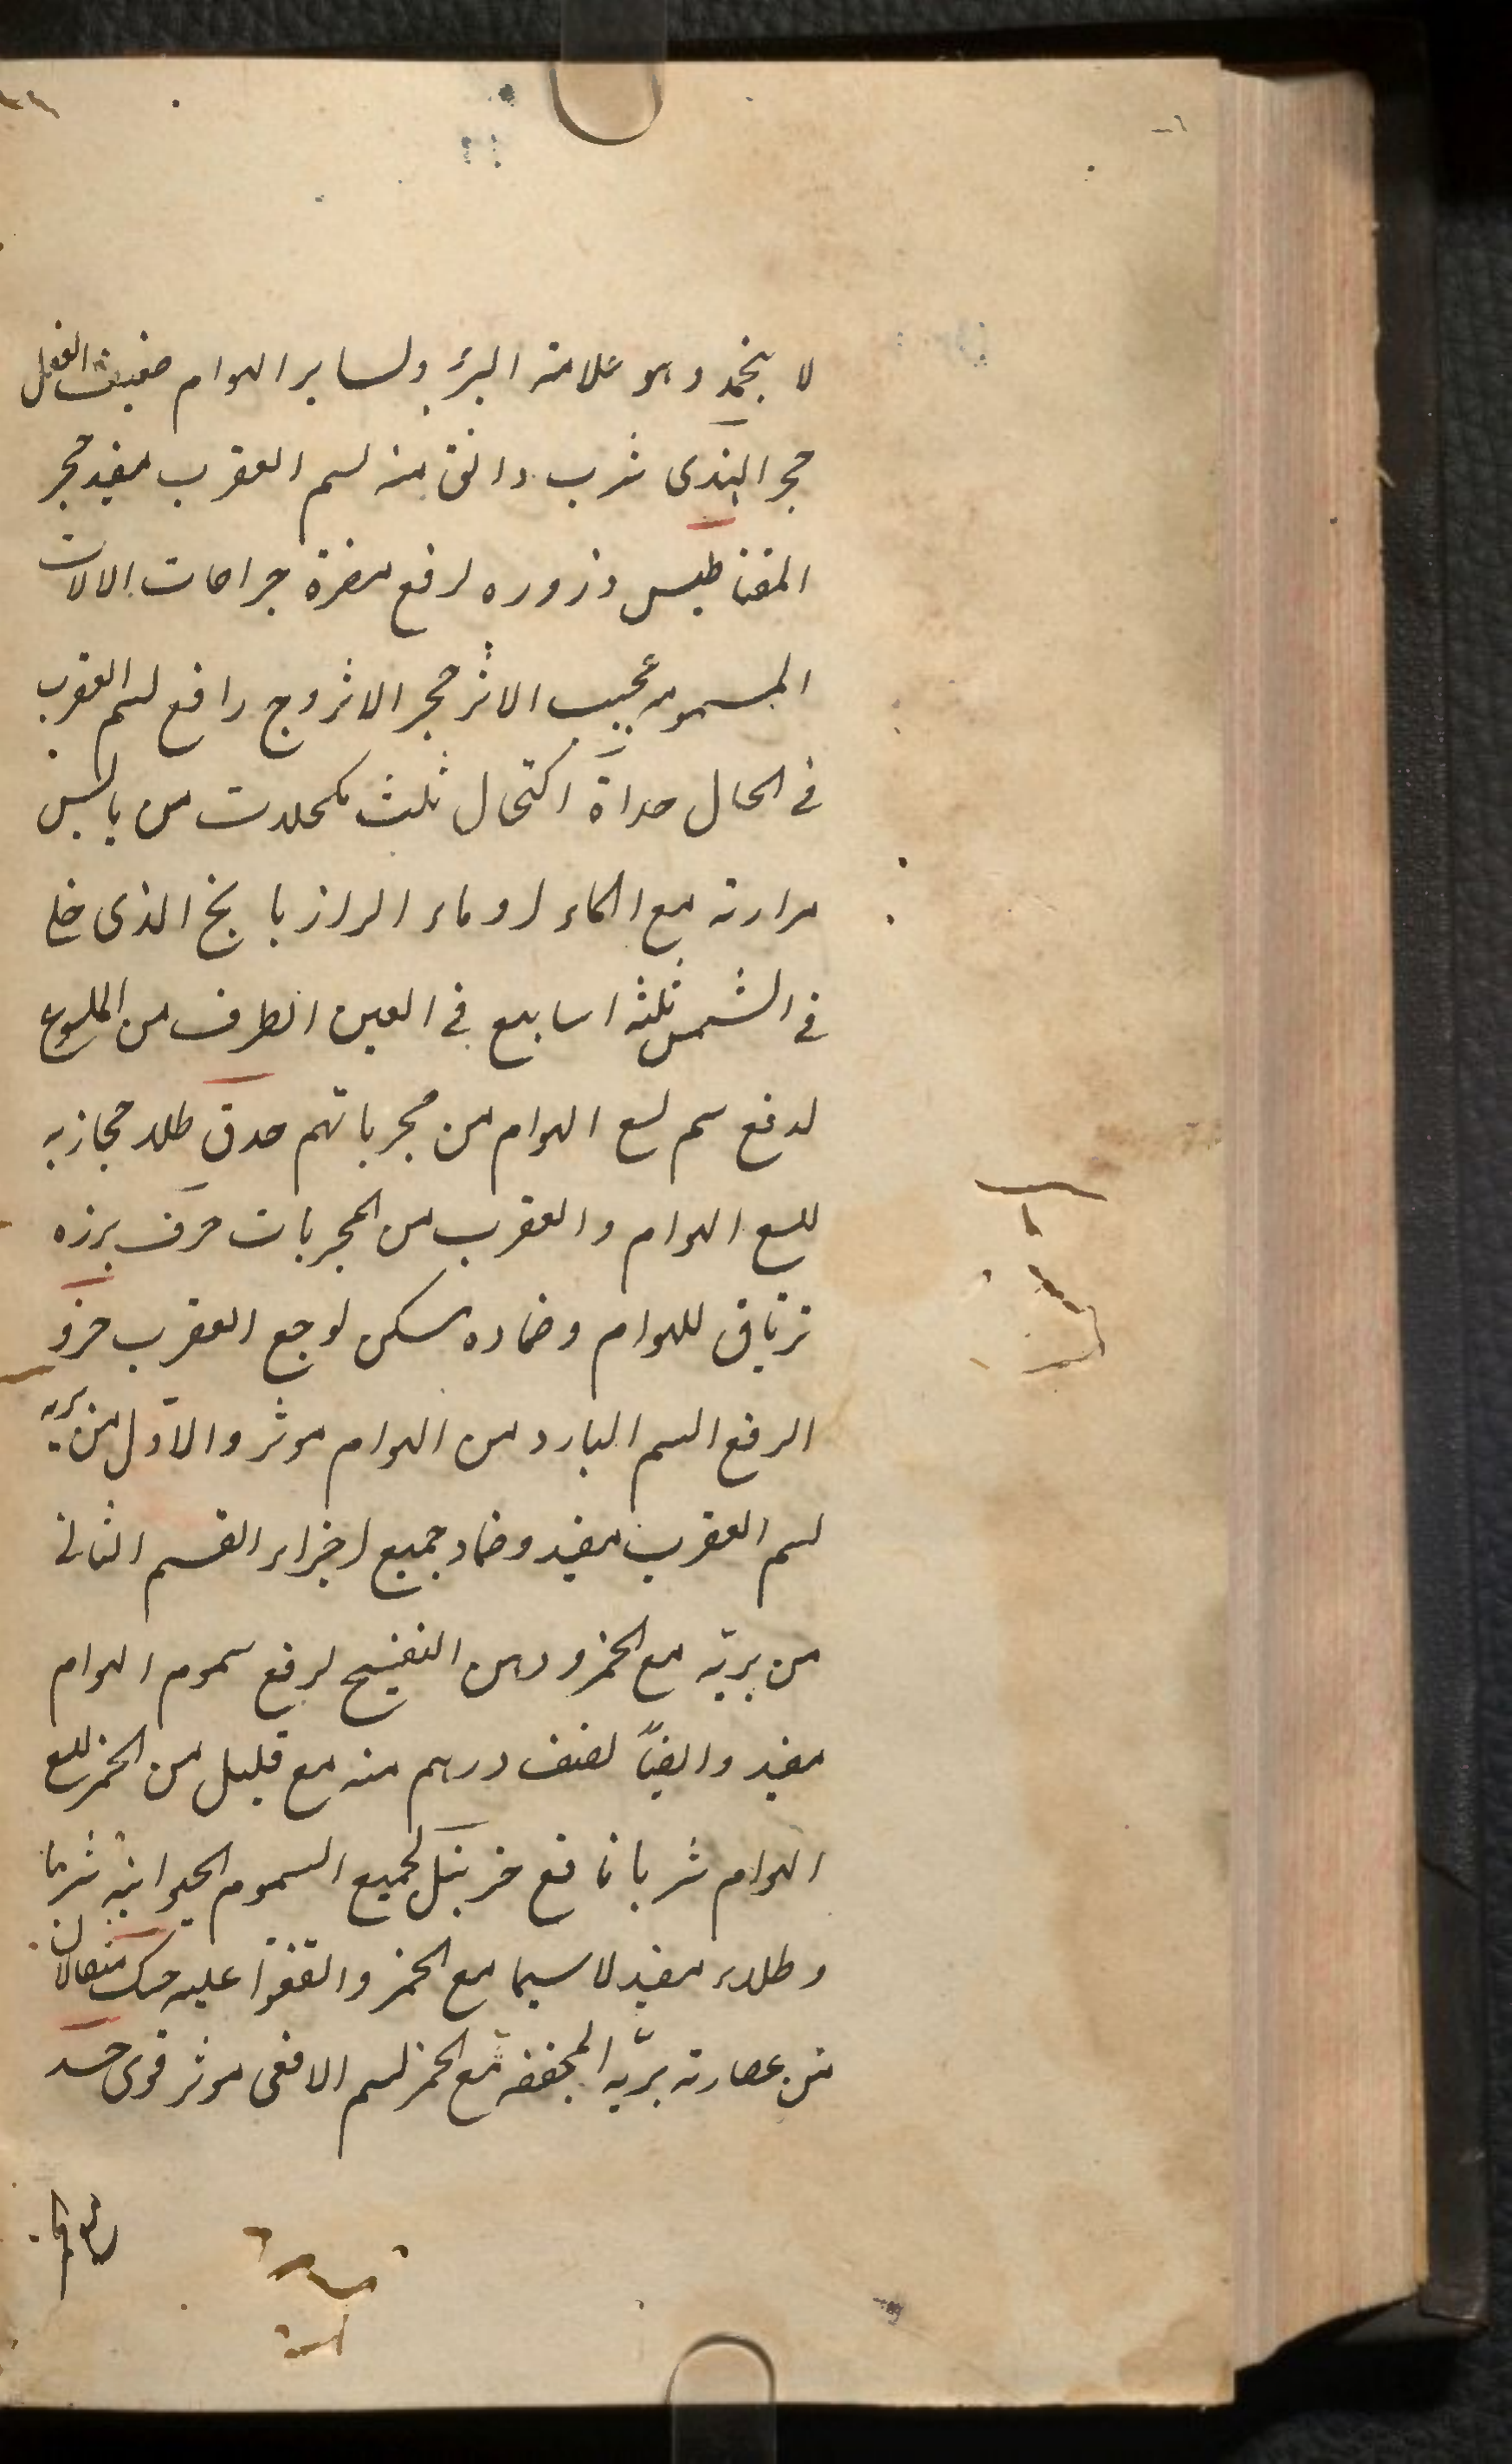 لا ینجمد وهو علامة البرء ولسایر الهوام ضعیف الفعل
حجر الهندی شرب دانق منه لسم العقرب مفید حجر
المقناطیس ذروره لرفع مضرة جراحات الالات
المسمومه عجیب الاثر حجر الاثروج رافع لسم العقرب
فی الحال حداة اکتحال ثلث مکحلات من یابس
مرارته مع الماء او ماء الرازیانج الذی خلی
فی الشمس ثلثه اسابیع فی العین الطرف من الملسوع
لدفع سم لسع الهوام من مجرباتهم حدق طلاء حجازیه
للسع الهوام والعقرب من المجربات حرف بزره
تریاق للهوام وضماده مسکن لوجع العقرب حزو
الرفع السم البارد من الهوام موثر والاول من بریه
لسم العقرب مفید وضماد جمیع اجزاء القسم الثانی
من بریّه مع الخمر ودهن البنفسج لرفع سموم الهوام
مفید وایضاً نصف درهم منه مع قلیل من الخمر للسع
الهوام شربا نافع خربنل لجمیع السموم الحیوانیة شربا
وطلاء مفید لاسیما مع الخمر واتفقوا علیه حسک مثقالان
من عصارته بریّه المجففة مع الخمر لسم الافعی موثر قوی حسد